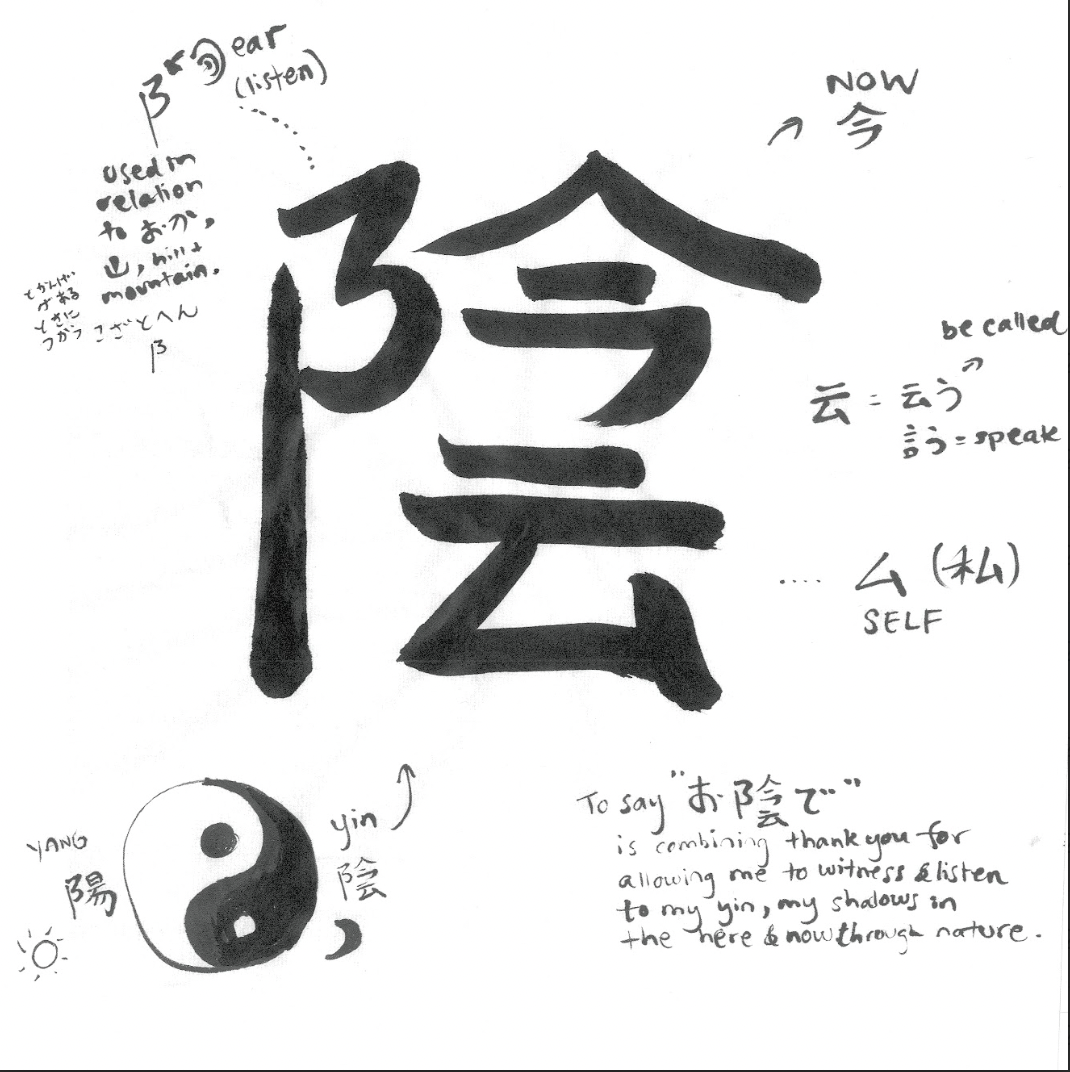 阝 ear
(listen)
used in
relation
to おか,
山, hill +
mountain.
こざとへん
阝
NOW
今
陰
be called
云 = 云う
言う = speak
.... ム (私)
SELF
YANG
陽
yin
陰
To say "お陰で"
is combining thank you for
allowing me to witness & listen
to my yin, my shadows in
the here & now through nature.